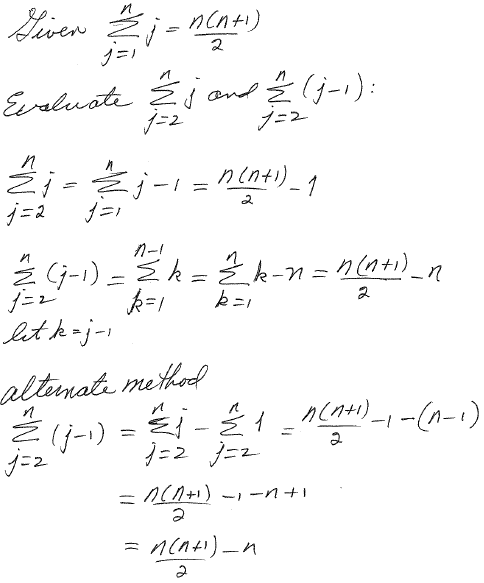 Given \sum_{j=1}^{n} j = \frac{n(n+1)}{2}
Evaluate \sum_{j=2}^{n} j and \sum_{j=2}^{n} (j-1):
\sum_{j=2}^{n} j = \sum_{j=1}^{n} j - 1 = \frac{n(n+1)}{2} - 1
\sum_{j=2}^{n} (j-1) = \sum_{k=1}^{n-1} k = \sum_{k=1}^{n} k - n = \frac{n(n+1)}{2} - n
let k = j-1
alternate method
\sum_{j=2}^{n} (j-1) = \sum_{j=2}^{n} j - \sum_{j=2}^{n} 1 = \frac{n(n+1)}{2} - 1 - (n-1)
= \frac{n(n+1)}{2} - 1 - n + 1
= \frac{n(n+1)}{2} - n